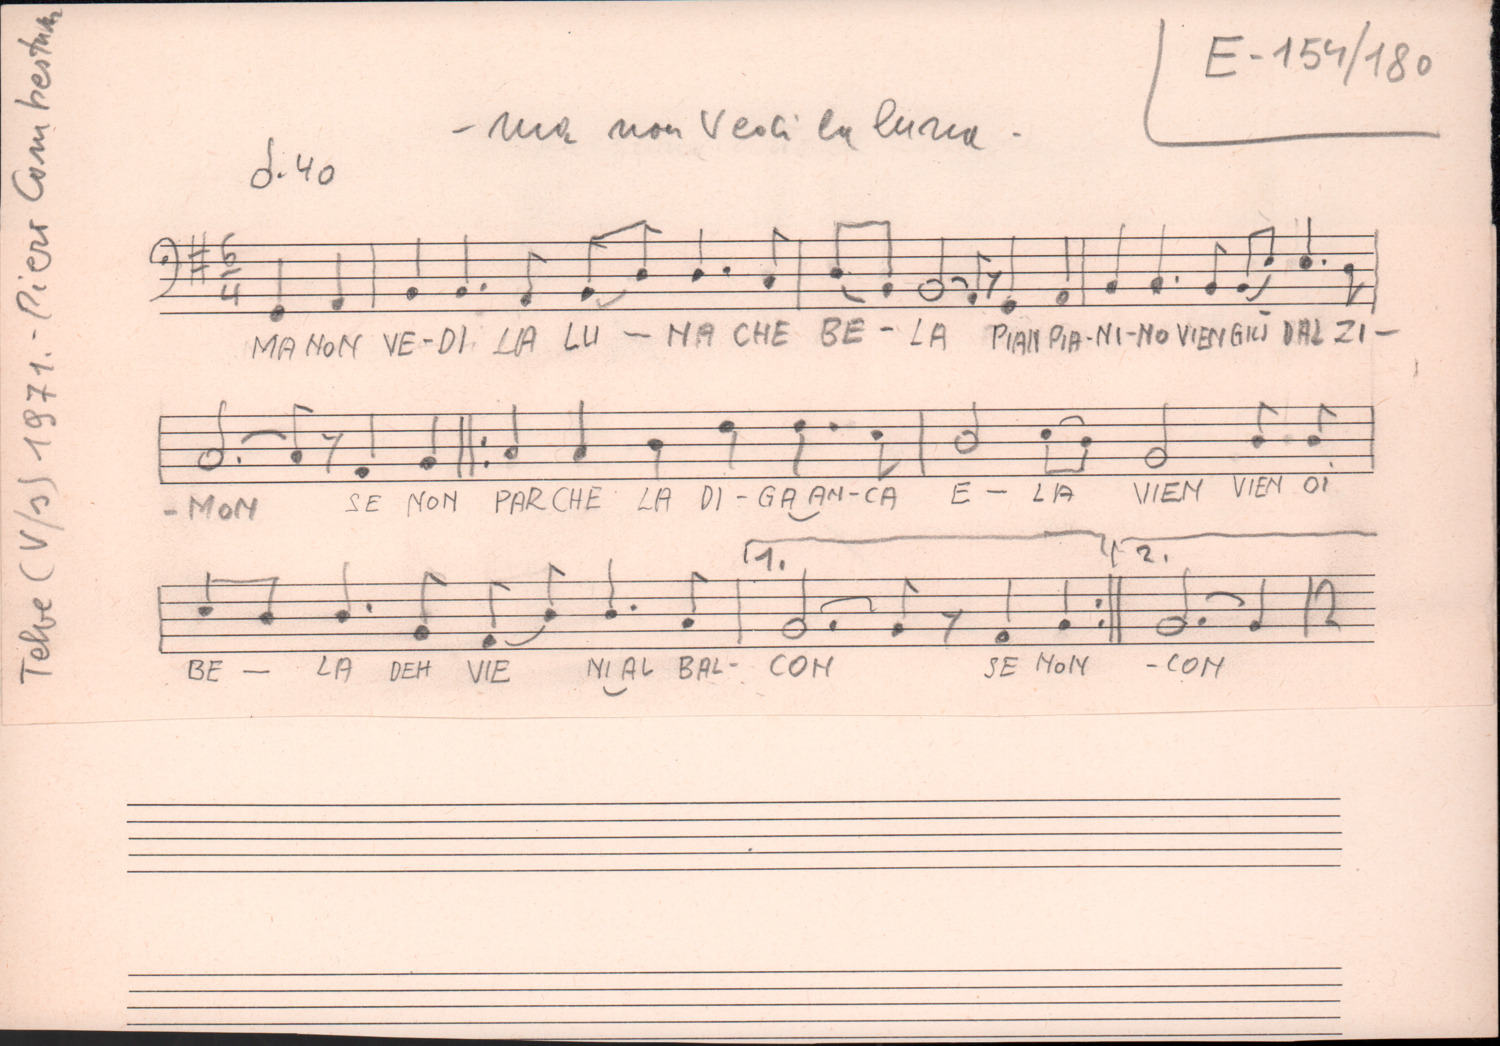 E-154/180
- Ma non vedi la luna -
d. 40
6
4
MA NON VE-DI LA LU - NA CHE BE - LA PIAN PIA-NI-NO VIEN GIÙ DAL ZI -
- MON SE NON PAR CHE LA DI - GA AN-CA E - LA VIEN VIEN OI
1. 2.
BE - LA DEH VIE NI AL BAL- CON SE NON -CON
Telve (V/s) 1971. - Piero